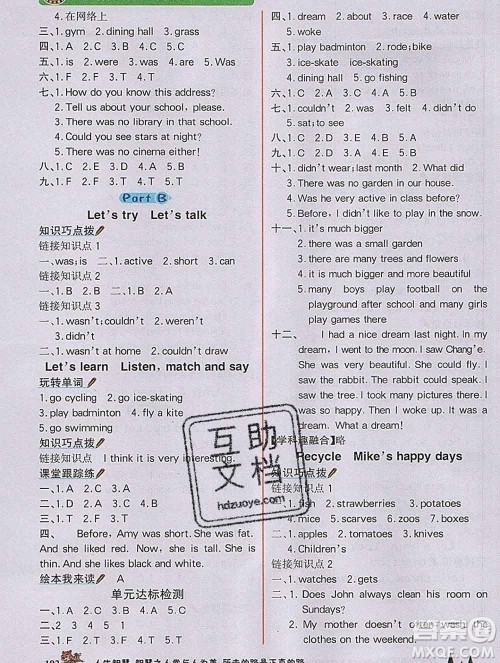 4. 在网络上
三、1. gym 2. dining hall 3. grass
四、1. A 2. C 3. A 4. B 5. C
五、1. is 2. were 3. was 4. are 5. Was
六、1. F 2. F 3. T 4. T
七、1. How do you know this address?
2. Tell us about your school, please.
3. There was no library in that school.
4. Could you see stars at night?
5. There was no cinema either!
八、1. C 2. E 3. D 4. A 5. B
九、1. F 2. F 3. T 4. F 5. T
Part B
Let's try Let's talk
知识巧点拨
链接知识点 1
一、1. was; is 二、1. active 2. short 3. can
链接知识点 2
一、1. B 2. A 二、1. A 2. B
链接知识点 3
一、1. wasn't; couldn't 2. weren't
3. didn't
二、1. wasn't at home 2. couldn't draw
Let's learn Listen, match and say
玩转单词
1. go cycling 2. go ice-skating
3. play badminton 4. fly a kite
5. go swimming
知识巧点拨
链接知识点 I think it is very interesting.
课堂跟踪练
一、1. D 2. C 3. B 4. E 5. A
二、1. A 2. B 3. C 4. B 5. A
三、1. F 2. F 3. T
四、 Before, Amy was short. She was fat.
And she liked red. Now, she is tall. She is
thin. And she likes blue.
绘本我来读 A
单元达标检测
一、1. B 2. C 3. A 4. B 5. C
二、2 4 3 1 5
三、1. F 2. T 3. T 4. F 5. T
四、1. dream 2. about 3. race 4. water
5. woke
五、1. play badminton 2. go cycling
3. ice-skate ice-skating
4. dining hall 5. go fishing
六、1. C 2. C 3. A 4. B 5. A
七、1. couldn't 2. was 3. felt 4. didn't
5. sat; to see
八、1. B 2. D 3. E 4. A 5. C
九、1. F 2. T 3. F 4. T 5. T
十、1. didn't wear; last month 2. What did
3. There was no garden in our house.
4. Was he very active in class before?
5. Before, I didn't like to play in the snow.
十一、1. it's much bigger
2. there was a small garden
3. there are many trees and flowers
4. it is much bigger and more beautiful
5. many boys play football on the
playground after school and many girls
play games there
十二、 I had a nice dream last night. In my
dream, I went to the moon. I saw Chang'e.
She was very beautiful. She could fly. I
saw the rabbit. The rabbit could speak. I
saw the tree. I took many pictures there. I
was so happy. Then I woke up. It was a
dream. What a dream!
【学科趣融合】略
Recycle Mike's happy days
知识巧点拨
链接知识点 1
一、1. fish 2. strawberries 3. potatoes
4. mice 5. scarves 6. zoos 7. boxes
二、1. feet 2. women 3. knives
4. Children's
链接知识点 2
一、1. watches 2. gets
二、1. Does John always clean his room on
Sundays?
2. My mother doesn't often wash the
clothes on the weekend.
互助
文档
hdzuoye.com